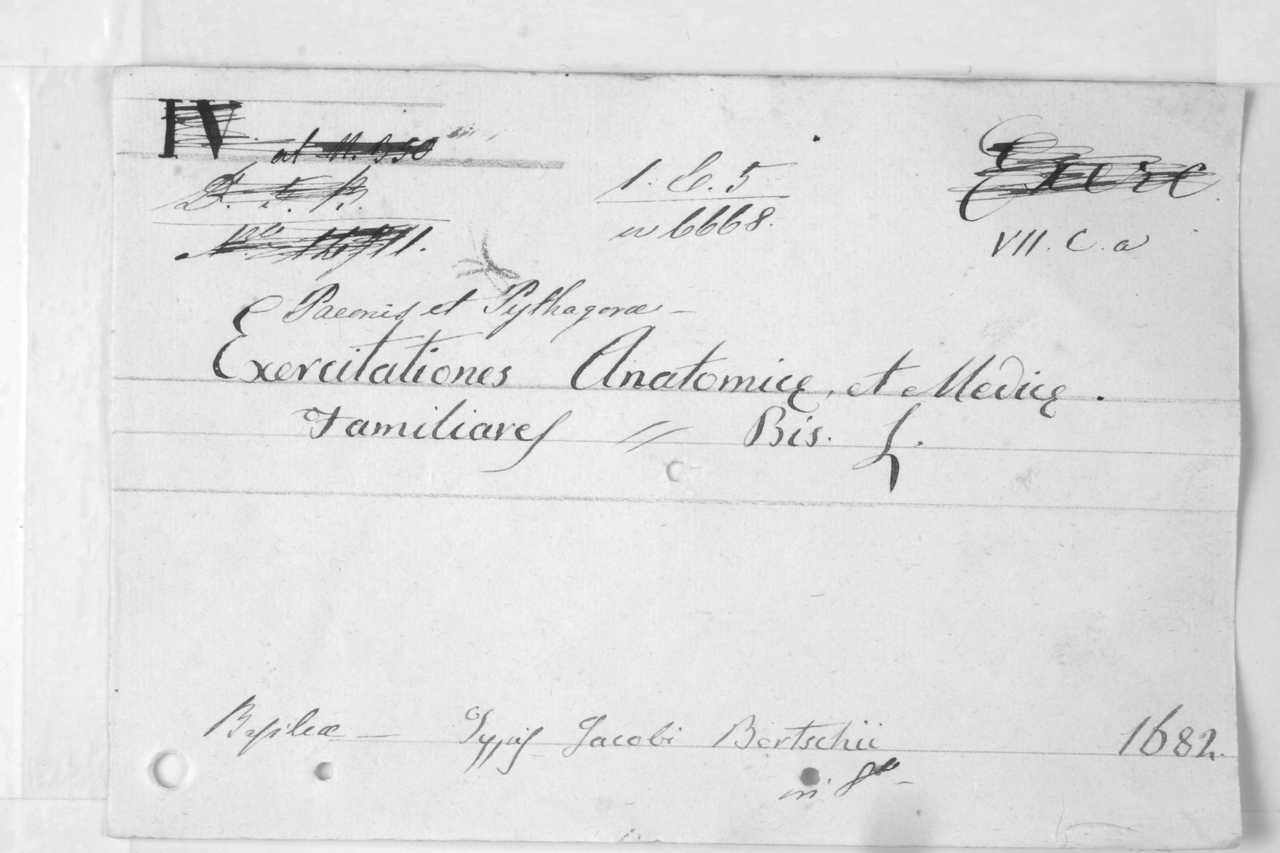 IV
at N. 350
D. d. B.
1. C. 5
Exerc
n 6668.
VII. C. a
Paeonis et Pythagoræ -
Exercitationes Anatomicę, et Medicę.
Familiares // Bis. L.
Basileæ - Typis Jacobi Bertschii 1682.
in 8º -